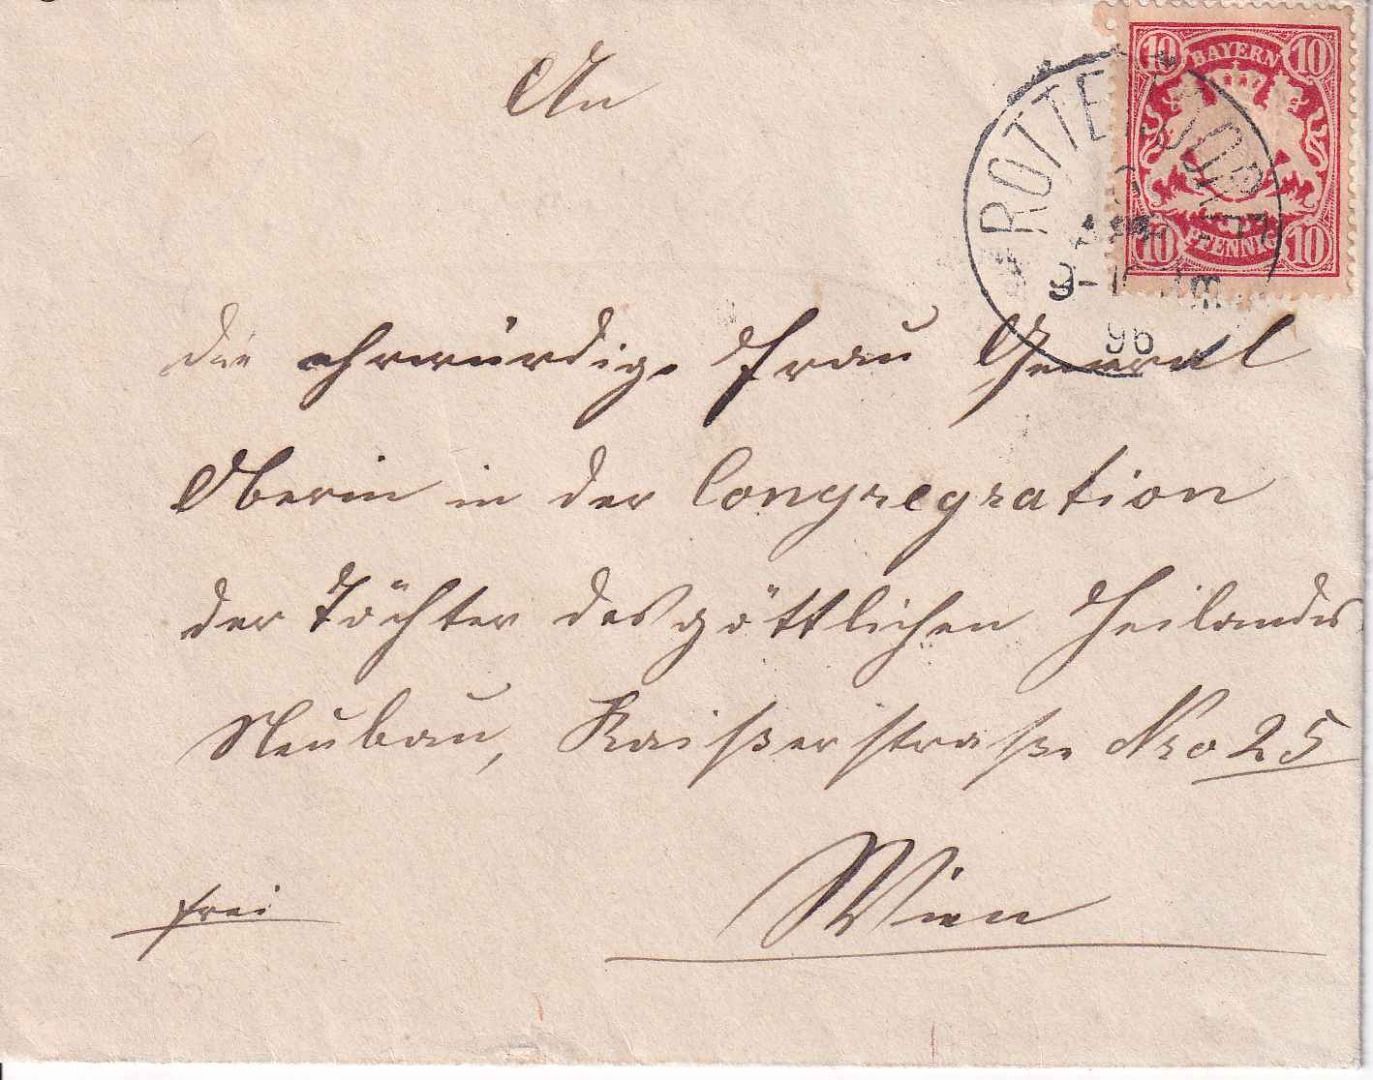 An
10 BAYERN 10
10 PFENNIG 10
ROTTENDORF
9-10 Vm
96
die ehrwürdige Frau General
Oberin in der Congregration
der Töchter des göttlichen Heilandes
Neubau, Kaißerstraße Nro 25
Wien
frei